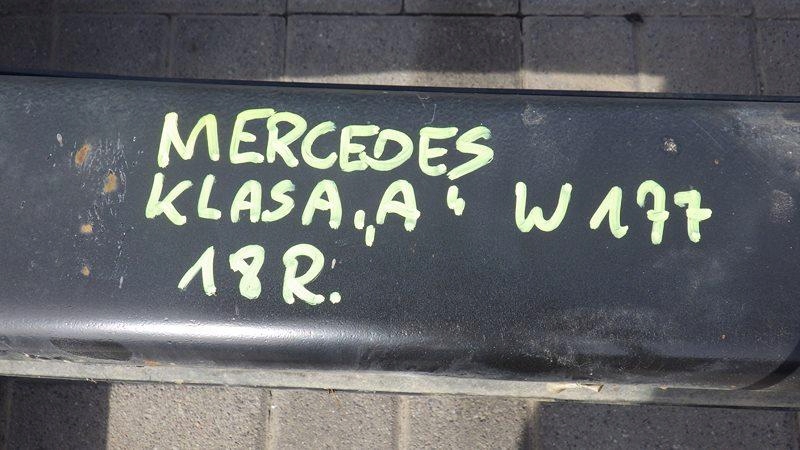 MERCEDES
KLASA „A" W177
18R.